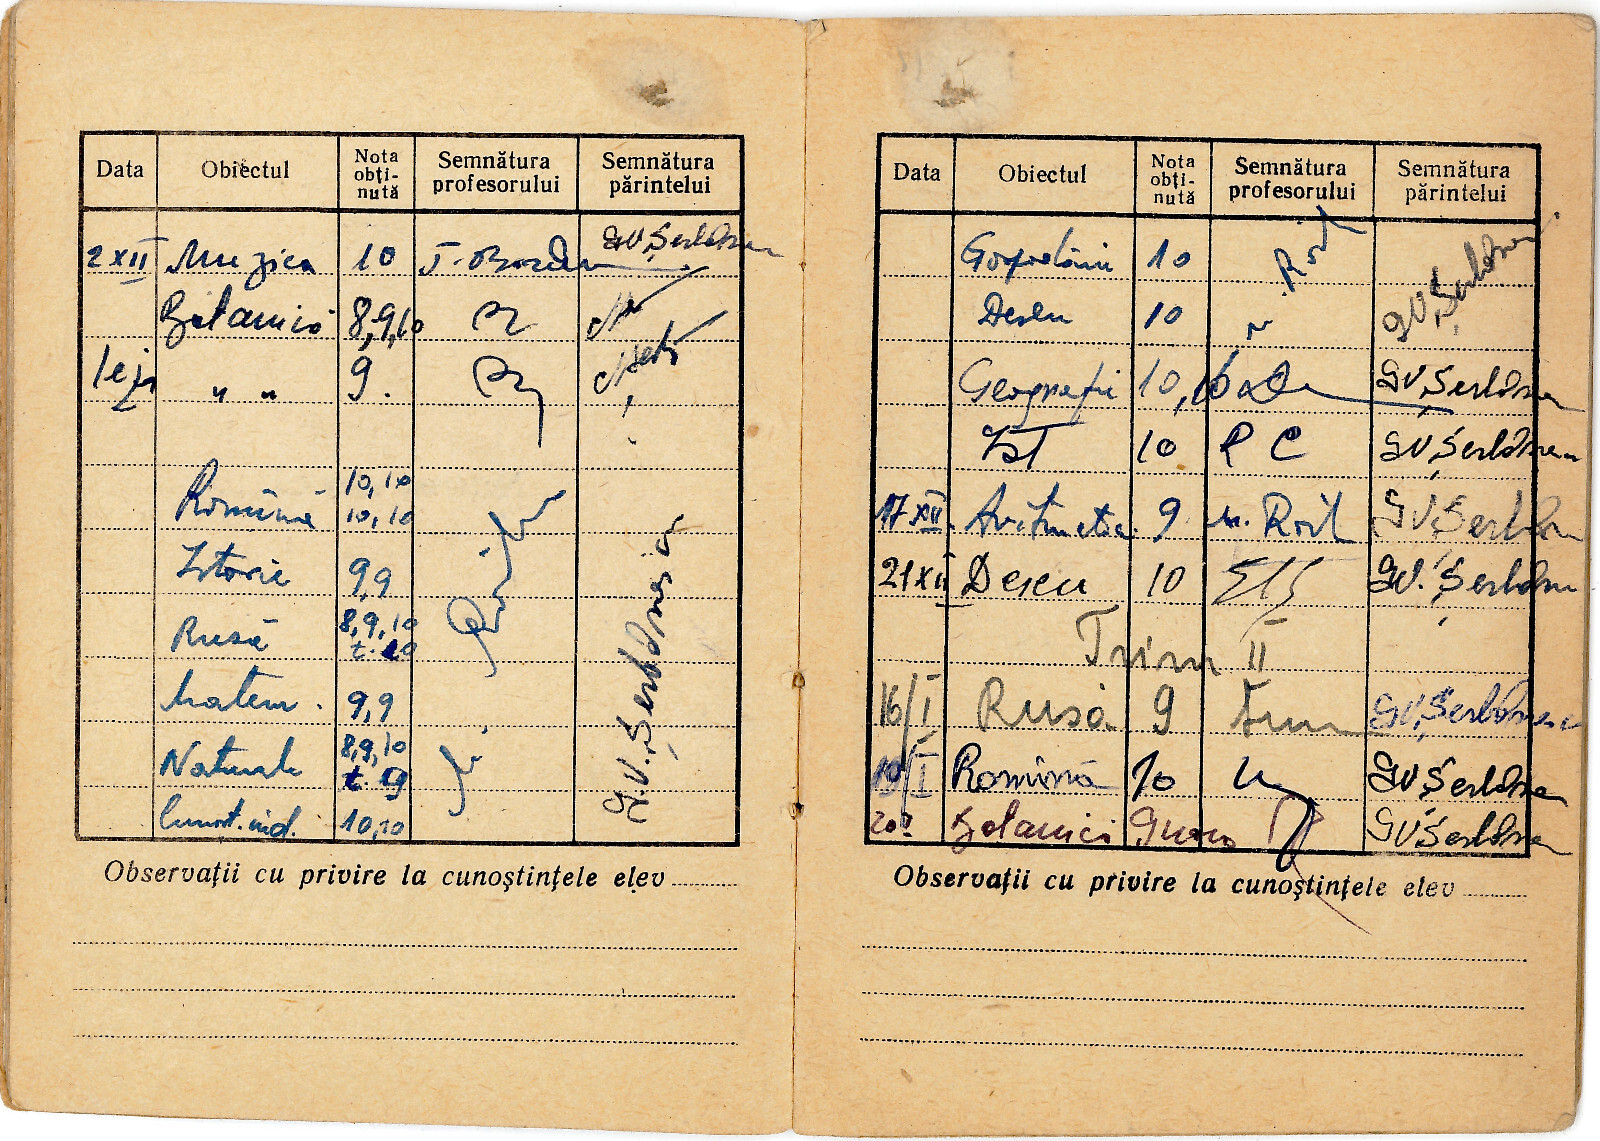 Data Obiectul Nota obți- nută Semnătura profesorului Semnătura părintelui
2 XII Muzica 10 GV Șerbănescu
Botanică 8,9,10
" " 9.
Română 10,10 10,10
Istorie 9,9
Rusă 8,9,10 t. 10
Matem. 9,9
G.V. Șerbănescu
Naturale 8,9,10 t. 9
Cunoșt. ind. 10,10
Observații cu privire la cunoștințele elev
Data Obiectul Nota obți- nută Semnătura profesorului Semnătura părintelui
Gospodării 10
Desen 10 GV Șerbănescu
Geografie 10,10 GV Șerbănescu
IST 10 P C GV Șerbănescu
17 XII Aritmetica 9 GV Șerbănescu
21 XII Desen 10 GV. Șerbănescu
Trim II
16/I Rusă 9 GV Șerbănescu
19/I Romină 10 GV Șerbănescu
20 Botanică 9 nouă GV Șerbănescu
Observații cu privire la cunoștințele elev